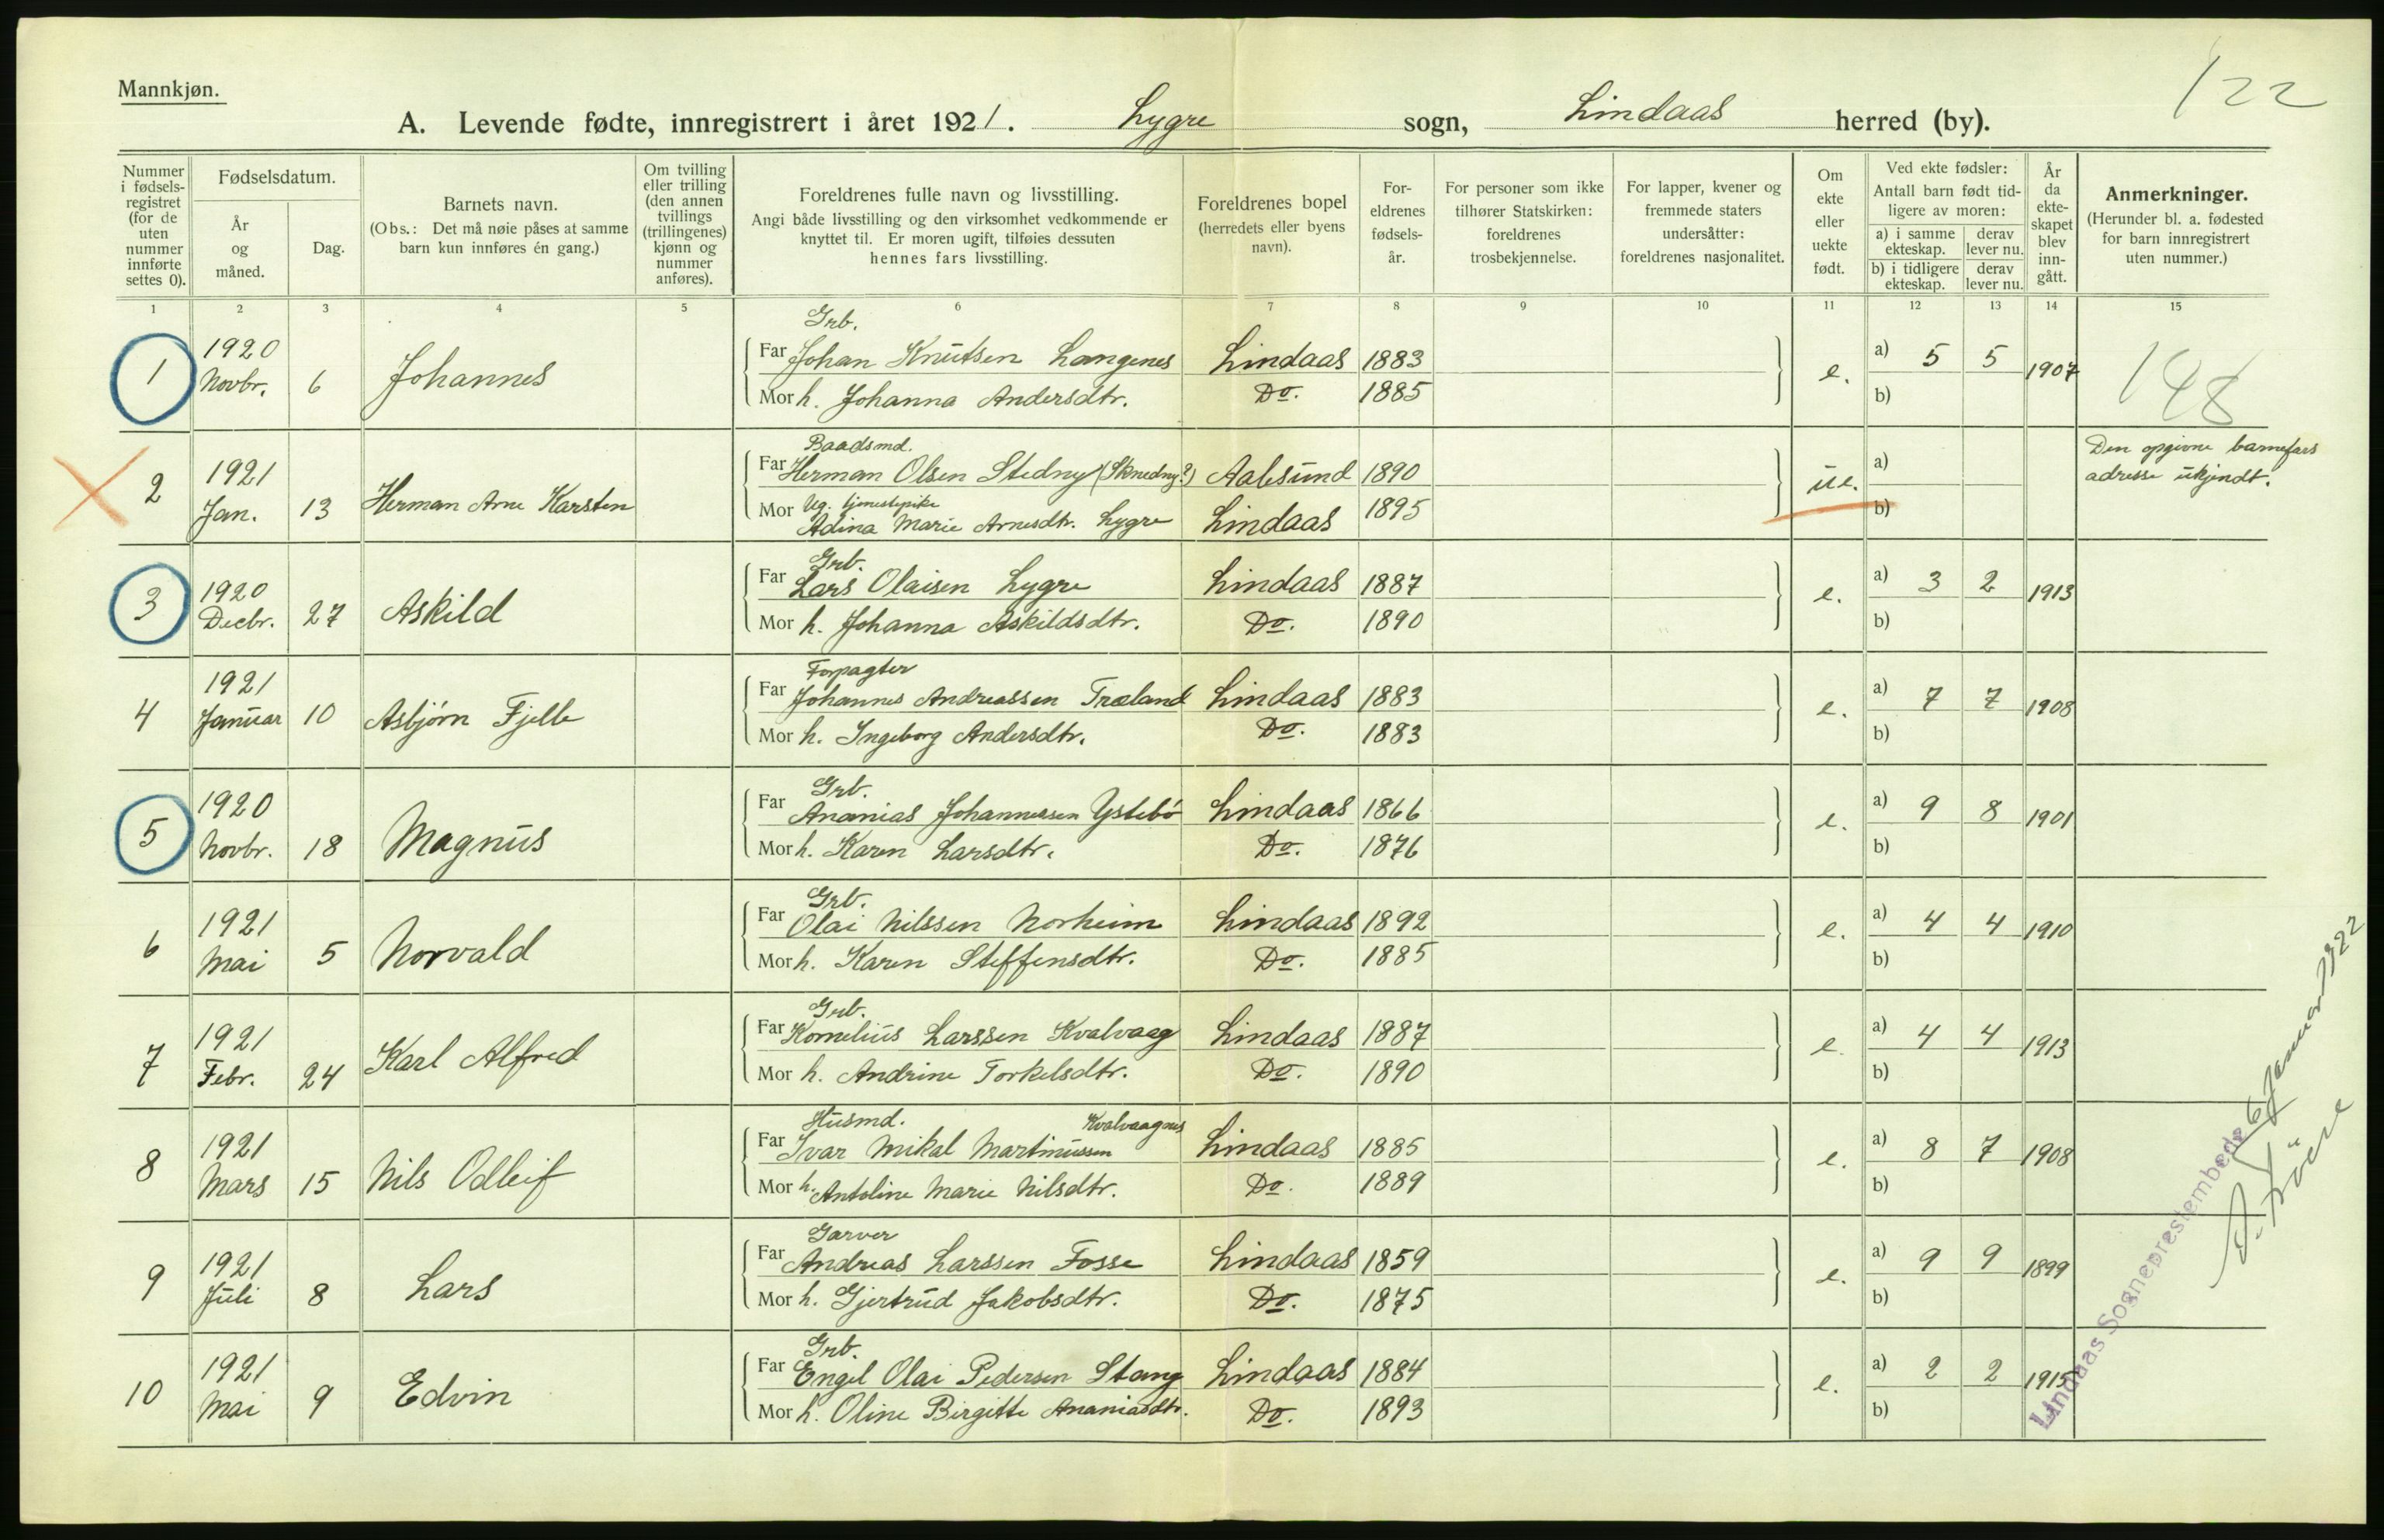 Mannkjøn.
122
A. Levende fødte, innregistrert i året 1921. Lygre sogn, Lindaas herred (by).
Nummer i fødsels-registret (for de uten nummer innførte settes 0).
Fødselsdatum.
År og måned.
Dag.
Barnets navn.
(Obs.: Det må nøie påses at samme barn kun innføres én gang.)
Om tvilling eller trilling (den annen tvillings (trillingenes) kjønn og nummer anføres).
Foreldrenes fulle navn og livsstilling.
Angi både livsstilling og den virksomhet vedkommende er knyttet til. Er moren ugift, tilføies dessuten hennes fars livsstilling.
Foreldrenes bopel (herredets eller byens navn).
For-eldrenes fødsels-år.
For personer som ikke tilhører Statskirken: foreldrenes trosbekjennelse.
For lapper, kvener og fremmede staters undersåtter: foreldrenes nasjonalitet.
Om ekte eller uekte født.
Ved ekte fødsler: Antall barn født tid-ligere av moren:
a) i samme ekteskap. derav lever nu.
b) i tidligere ekteskap. derav lever nu.
År da ekte-skapet blev inn-gått.
Anmerkninger.
(Herunder bl. a. fødested for barn innregistrert uten nummer.)
1 2 3 4 5 6 7 8 9 10 11 12 13 14 15
Grb.
1 1920 Novbr. 6 Johannes Far Johan Knutsen Langenes Lindaas 1883 e. a) 5 5 1907 148
Mor h. Johanna Andersdtr. Do. 1885 b)
Baadsmd.
2 1921 Jan. 13 Herman Arne Karsten Far Herman Olsen Stedny (Sknedny?) Aalesund 1890 ue. a) Den opgivne barnefars adresse ukjendt.
Ug. tjenestepike
Mor Adina Marie Arnesdtr. Lygre Lindaas 1895 b)
Grb.
3 1920 Decbr. 27 Askild Far Lars Olaisen Lygre Lindaas 1887 e. a) 3 2 1913
Mor h. Johanna Askildsdtr. Do. 1890 b)
Forpagter
4 1921 Januar 10 Asbjörn Fjelle Far Johannes Andreassen Træland Lindaas 1883 e. a) 7 7 1908
Mor h. Ingeborg Andersdtr. Do. 1883 b)
Grb.
5 1920 Novbr. 18 Magnus Far Ananias Johannessen Ystebö Lindaas 1866 e. a) 9 8 1901
Mor h. Karen Larsdtr. Do. 1876 b)
Grb.
6 1921 Mai 5 Norvald Far Olai Nilssen Norheim Lindaas 1892 e. a) 4 4 1910
Mor h. Karen Steffensdtr. Do. 1885 b)
Grb.
7 1921 Febr. 24 Karl Alfred Far Kornelius Larssen Kvalvaag Lindaas 1887 e. a) 4 4 1913
Mor h. Andrine Torkelsdtr. Do. 1890 b)
Husmd. Kvalvaagnes
8 1921 Mars 15 Nils Odleif Far Ivar Mikal Martinussen Lindaas 1885 e. a) 8 7 1908
Mor h. Antoline Marie Nilsdtr. Do. 1889 b)
Garver
9 1921 Juli 8 Lars Far Andreas Larssen Fosse Lindaas 1859 e. a) 9 9 1899
Mor h. Gjertrud Jakobsdtr. Do. 1875 b)
Grb.
10 1921 Mai 9 Edvin Far Engel Olai Pedersen Stang Lindaas 1884 e. a) 2 2 1915
Mor h. Oline Birgitte Ananiasdtr. Do. 1893 b)
Lindaas Sogneprestembede 6 Januar 1922